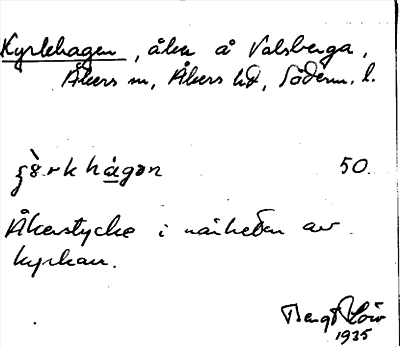 Kyrkhagen, åker å Valsberga,
Åkers sn, Åkers hd, Söderm. l.
50.
Åkerstycke i närheten av
kyrkan.
Bengt Löw
1935